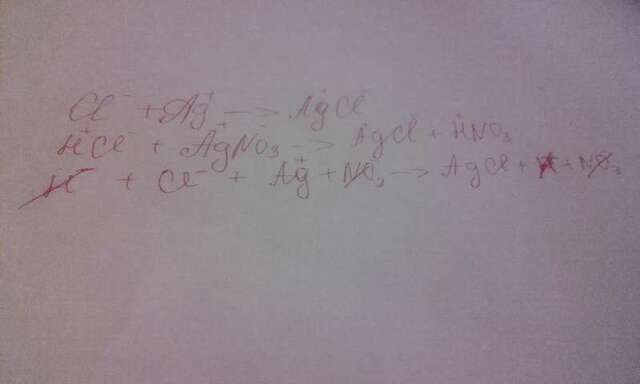 Cl⁻ + Ag⁺ → AgCl
H⁺Cl⁻ + Ag⁺NO₃⁻ → AgCl + HNO₃
H⁺ + Cl⁻ + Ag⁺ + NO₃ → AgCl + H + NO₃